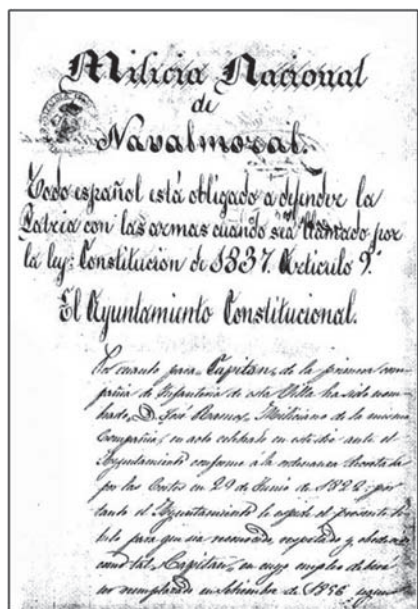 Milicia Nacional
de
Navalmoral.
Todo español está obligado a defender la
Patria con las armas cuando sea llamado por
la ley: Constitución de 1837. Articulo 9.º
El Ayuntamiento Constitucional.
Por cuanto para Capitan, de la primera com-
pañia de Infanteria de esta Villa ha sido nom-
brado, D. José Bramos, Miliciano de la misma
Compañia, en acto celebrado en este dia ante el
Ayuntamiento conforme á la ordenanza decretada
por las Cortes en 29 de Junio de 1822: por
tanto el Ayuntamiento le espide el presente tí-
tulo para que sea reconocido, respetado y obedecido
como tal Capitan, en cuyo empleo deberá
ser remplazado en Setiembre de 1856